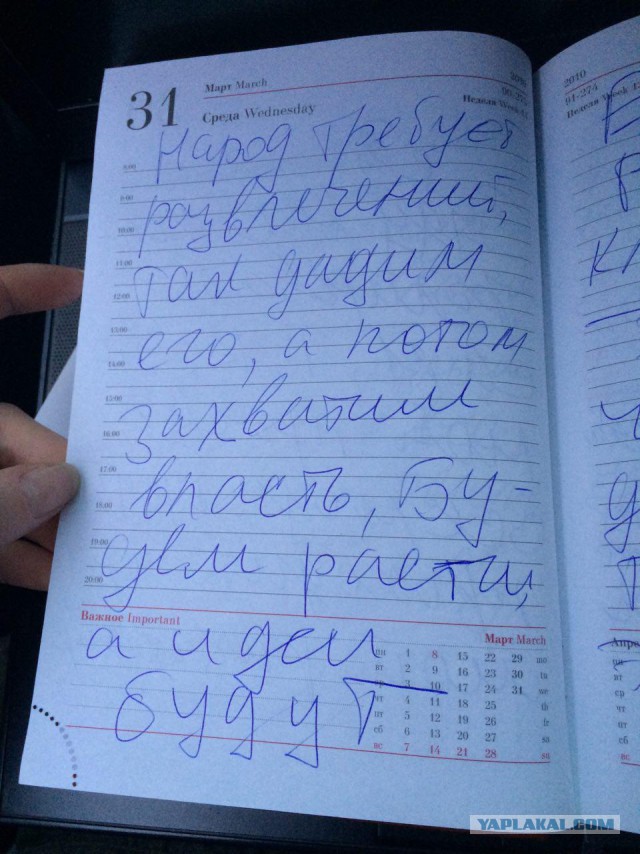 31
Март March
Среда Wednesday
Неделя Week
8:00
9:00
10:00
11:00
12:00
13:00
14:00
15:00
16:00
17:00
18:00
19:00
20:00
Народ требует
развлечений,
так дадим
его, а потом
захватим
власть, Бу-
дем расти,
а идеи
будут
Важное Important
Март March
пн 1 8 15 22 29 mo
вт 2 9 16 23 30 tu
ср 3 10 17 24 31 we
чт 4 11 18 25 th
пт 5 12 19 26 fr
сб 6 13 20 27 sa
вс 7 14 21 28 su
2010
91-274
Неделя Week
YAPLAKAL.COM